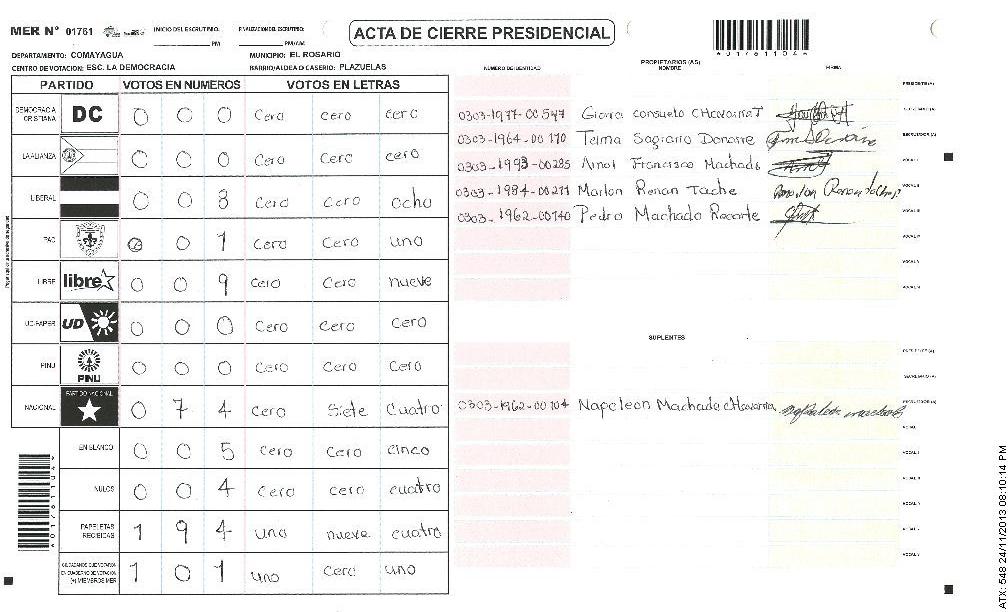 MER N° 01761 INICIO DEL ESCRUTINIO: PM FINALIZACION DEL ESCRUTINIO: PM/AM
ACTA DE CIERRE PRESIDENCIAL
DEPARTAMENTO: COMAYAGUA MUNICIPIO: EL ROSARIO
CENTRO DE VOTACIÓN: ESC. LA DEMOCRACIA BARRIO/ALDEA O CASERIO: PLAZUELAS
PARTIDO VOTOS EN NUMEROS VOTOS EN LETRAS
DEMOCRACIA CRISTIANA DC 0 0 0 Cero cero cero
LA ALIANZA 0 0 0 Cero Cero cero
LIBERAL 0 0 8 Cero Cero ocho
PAC 0 0 1 Cero Cero uno
LIBRE libre 0 0 9 Cero Cero nueve
UD-FAPER UD 0 0 0 Cero cero Cero
PINU PINU 0 0 0 Cero Cero Cero
NACIONAL PARTIDO NACIONAL 0 7 4 Cero Siete Cuatro
EN BLANCO 0 0 5 Cero Cero cinco
NULOS 0 0 4 Cero cero cuatro
PAPELETAS RECIBIDAS 1 9 4 uno nueve cuatro
CIUDADANOS QUE VOTARON EN CUADERNO DE VOTACION (+) MIEMBROS MER 1 0 1 uno Cero uno
PROPIETARIOS (AS)
NUMERO DE IDENTIDAD NOMBRE FIRMA
PRESIDENTE(A)
0303-1977-00547 consuelo SECRETARIO(A)
0303-1964-00170 ESCRUTADOR(A)
Francisco Machado VOCAL I
0303-1984-00271 Marlon Renan Tache VOCAL II
0303-1962-00740 Pedro Machado VOCAL III
VOCAL IV
VOCAL V
SUPLENTES
PRESIDENTE(A)
SECRETARIO(A)
0303-1962-00704 Napoleon Machado ESCRUTADOR(A)
ATX: 548 24/11/2013 08:10:14 PM